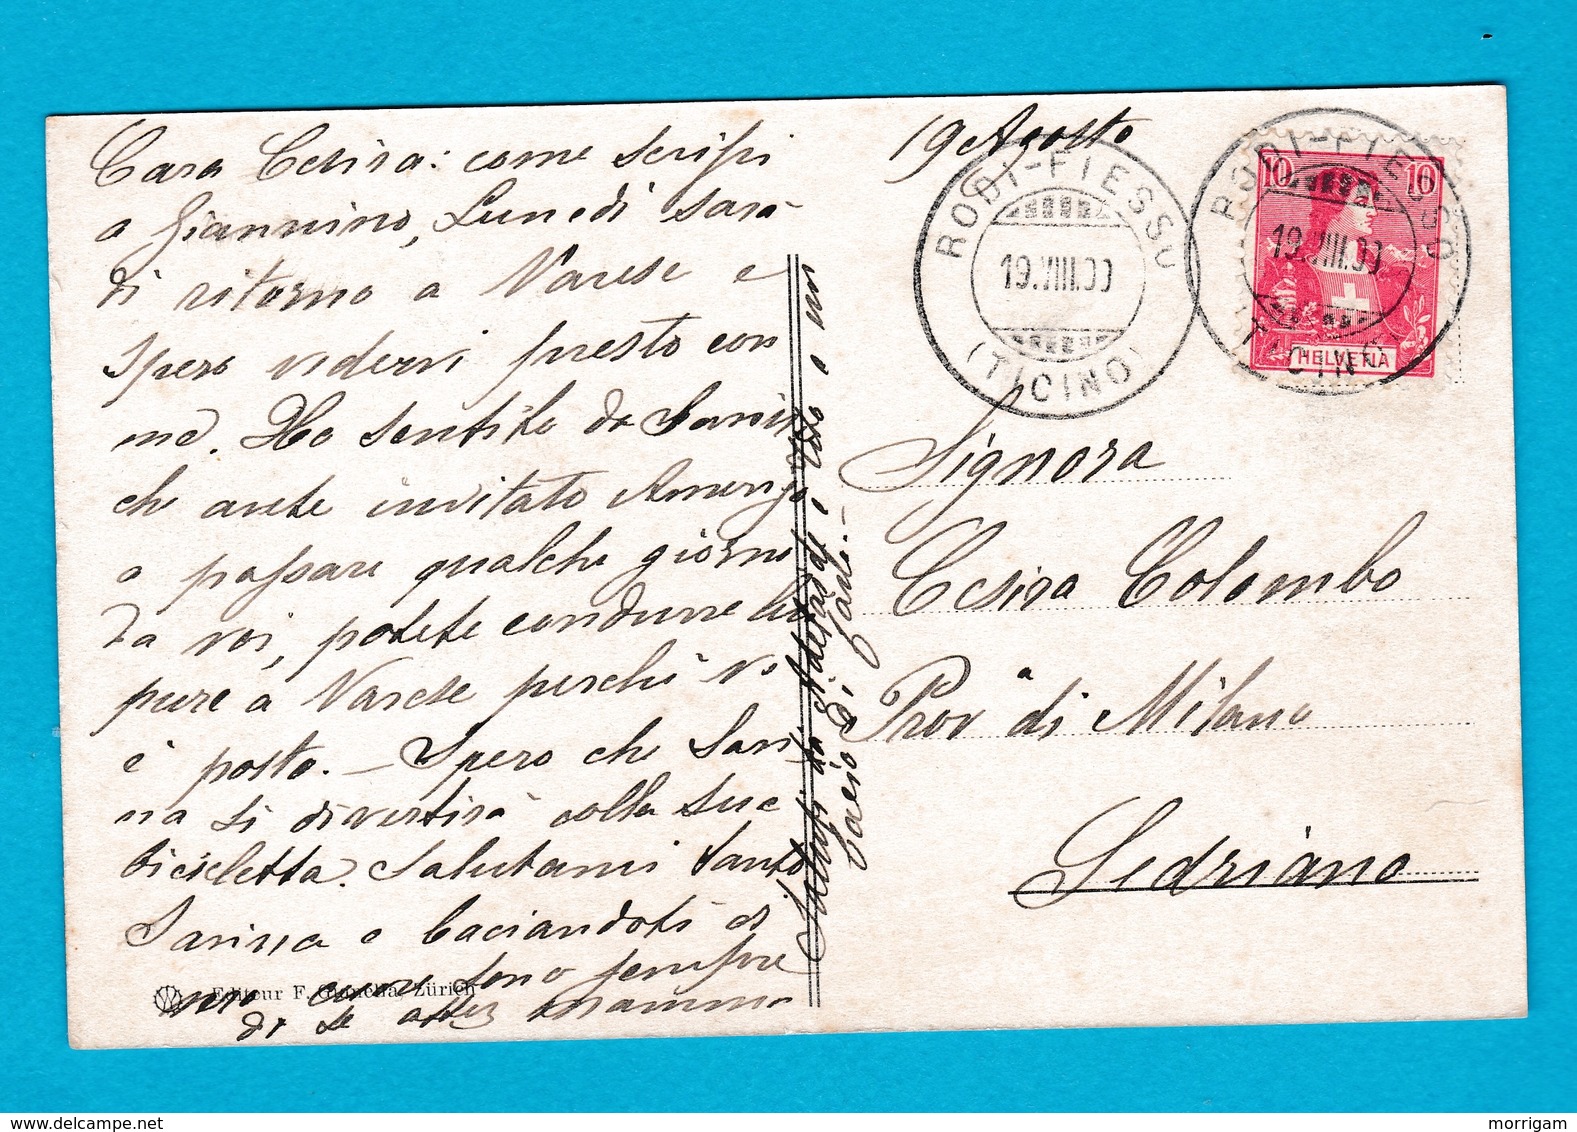 Cara Cesira: come scrissi
a Giannino, Lunedì sarò
di ritorno a Varese e
spero vedervi presto con
me. Ho sentito da
che avete invitato Amerigo
a passare qualche giorno
da voi, potete condurre
pure a Varese perchè vi
è posto. – Spero che Sari
na si divertirà colla sua
bicicletta. Salutami tanto
Sarina e baciandoti di
vero cuore sono sempre
mamma
Saluti da
di
19 Agosto
RODI-FIESSO
19.VIII.09
(TICINO)
RODI-FIESSO
19.VIII.09
(TICINO)
10 10
HELVETIA
Signora
Cesira Colombo
Prov.a di Milano
Sedriano
Editeur F. Zürich
morrigam